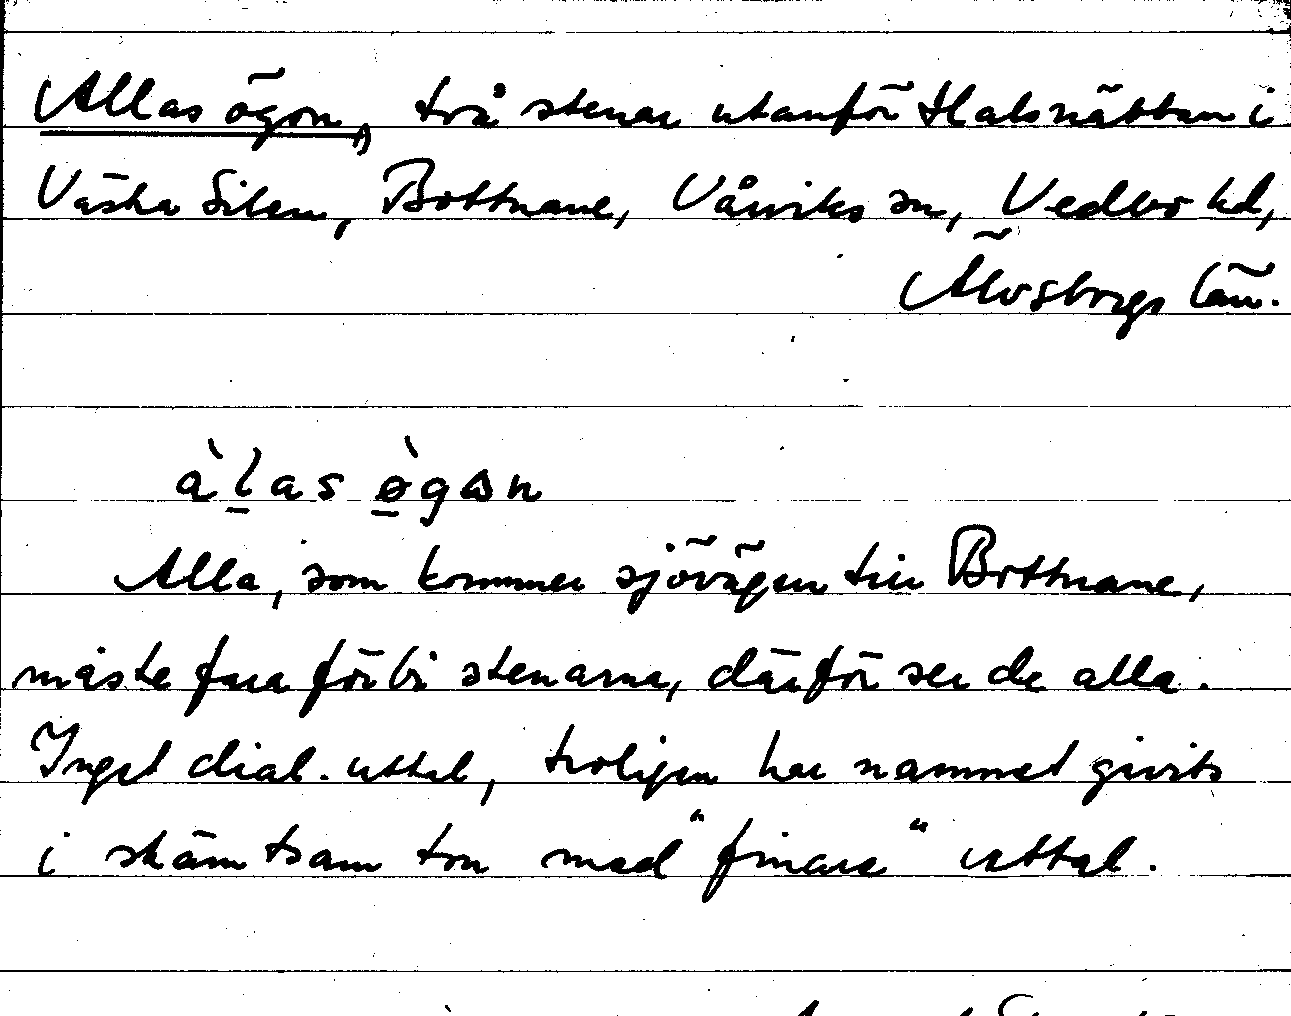 Allas ögon, två stenar utanför Halsnäbban i
Västra Silen, Bottnane, Vårviks sn, Vedbo hd,
Älvsborgs län.
àl̠as ø̠̀gɷn
Alla, som kommer sjövägen till Bottnane,
måste fara förbi stenarna, därför ser de alla.
Inget dial. uttal, troligen har namnet givits
i skämtsam ton med "finare" uttal.